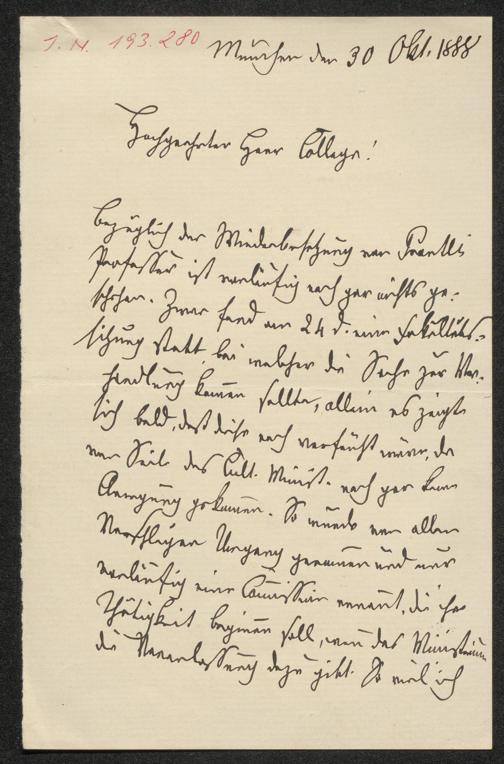 I. N. 193.280
München den 30 Okt. 1888
Hochgeehrter Herr College!
Bezüglich der Wiederbesetzung von Prantls
Professur ist vorläufig noch gar nichts ge-
schehen. Zwar fand am 24 d. eine Fakultäts-
sitzung statt, bei welcher die Sache zur Ver-
handlung kommen sollte, allein es zeigte
sich bald, daß diese noch verfrüht wäre, da
von Seite des Cult. Minist. noch gar keine
Anregung gekommen. So wurde von allen
Vorschlägen Umgang genommen und nur
vorläufig eine Commission ernannt, die ihre
Thätigkeit beginnen soll, wenn das Ministerium
die Veranlassung dazu gibt. So viel ich